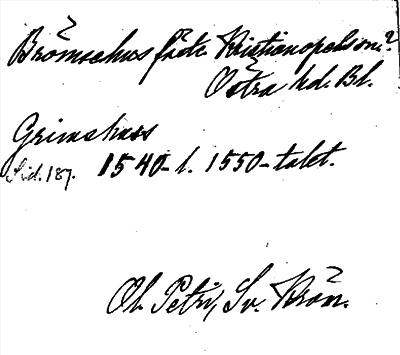 Brömsehus fäste Kristianopels sn?
Östra hd. Bl.
Grimshuss
Sid. 187. 1540- l. 1550-talet.
Ol. Petri, Sv. Krön.